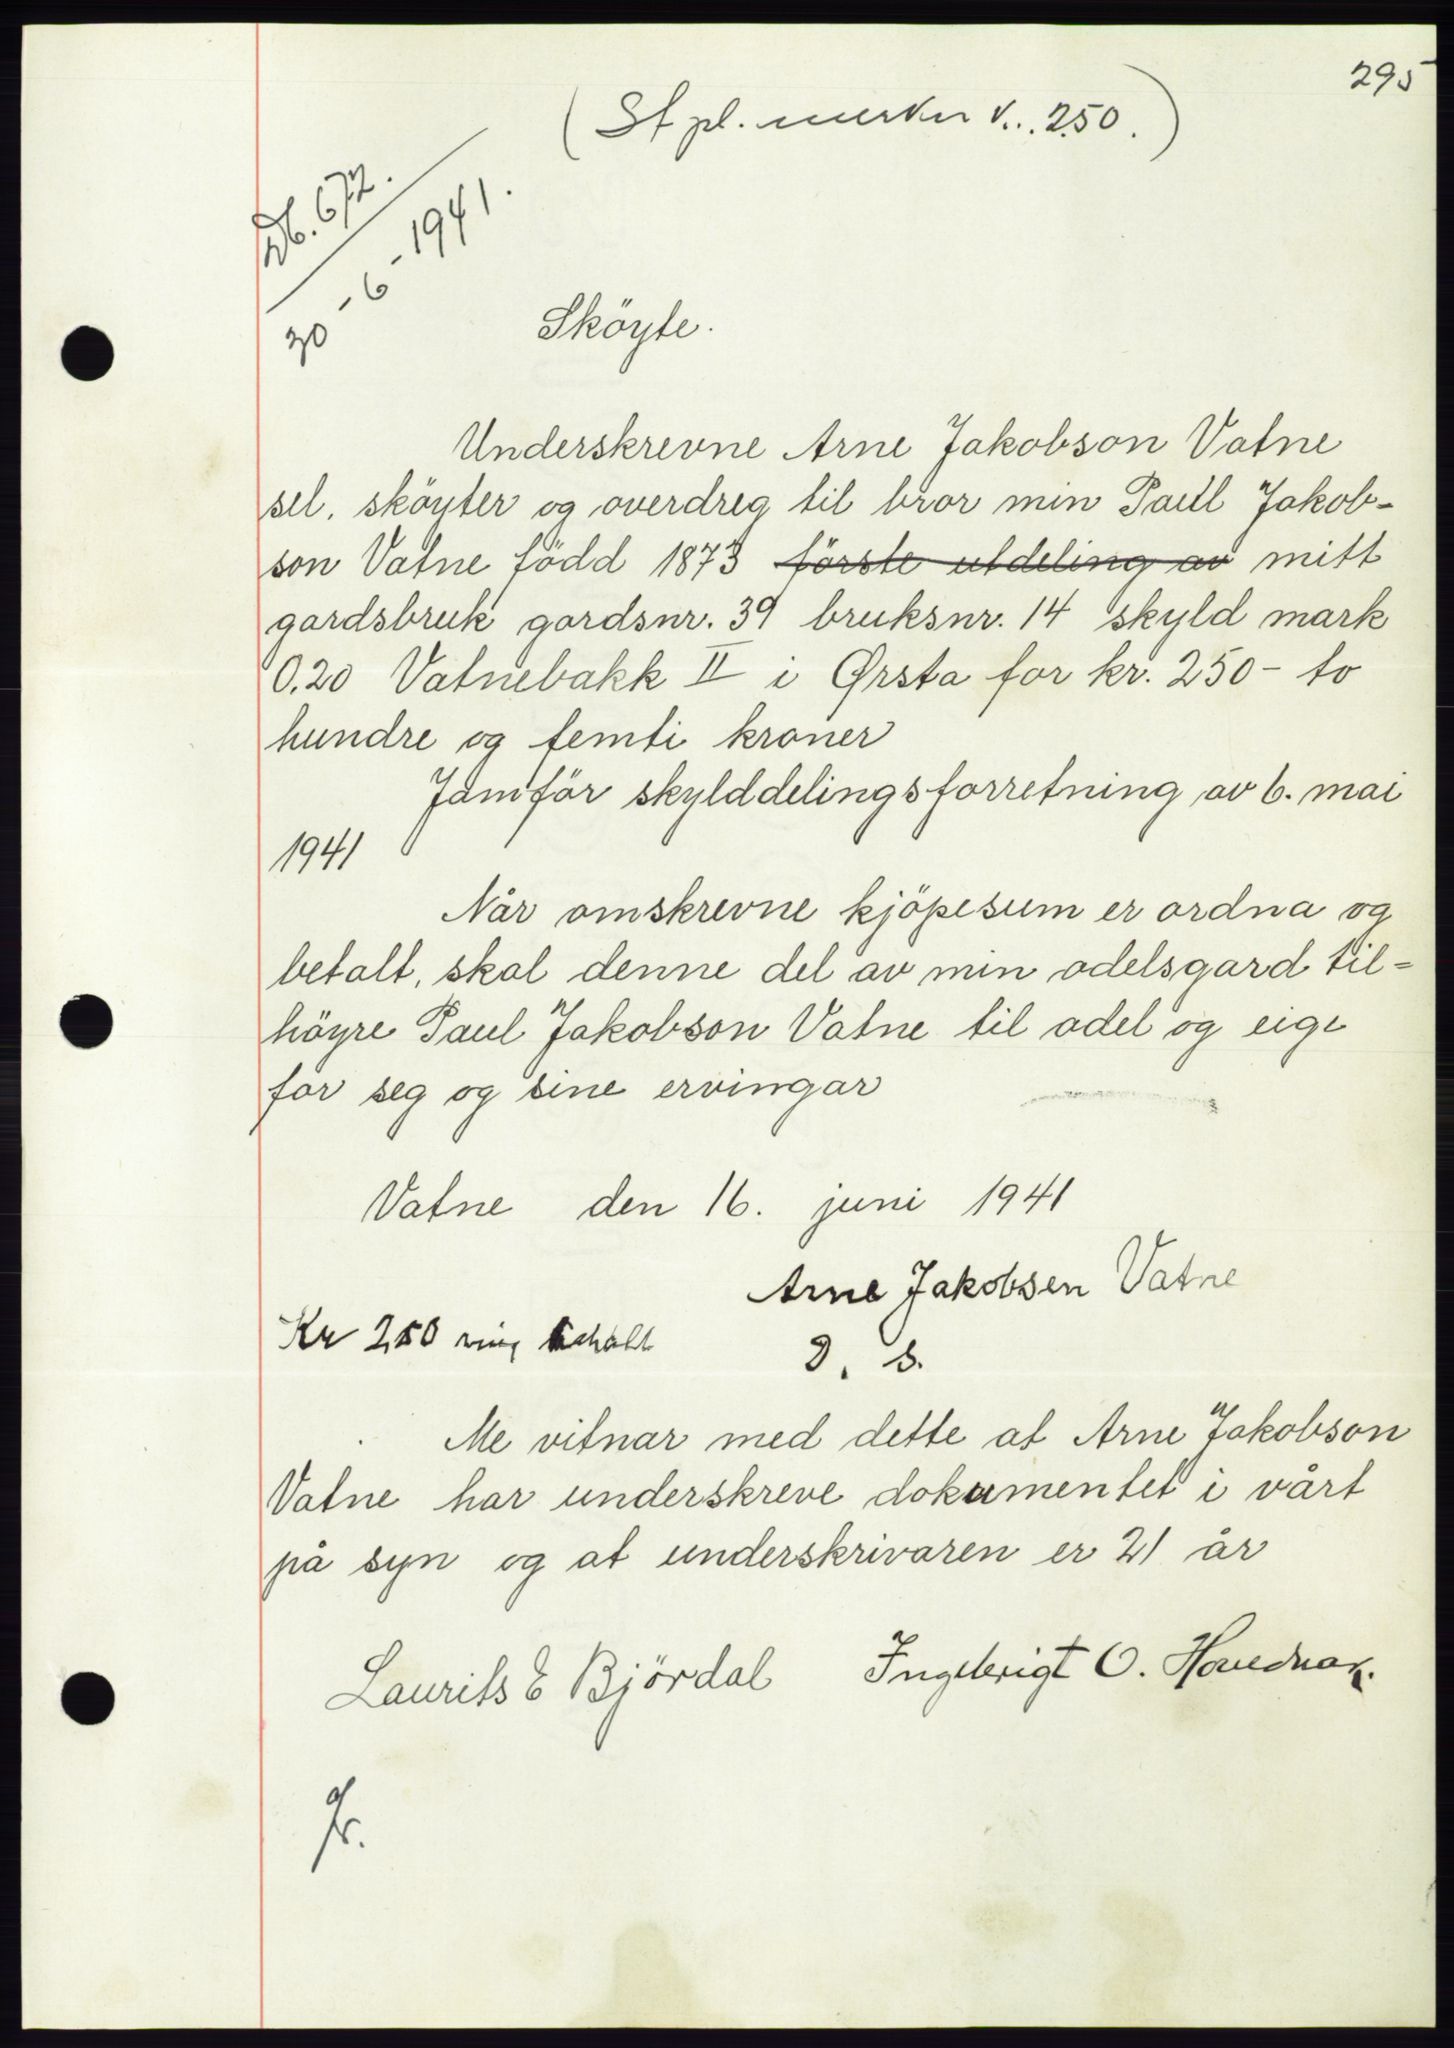 295
(Stpl. merker k. 2.50.)
Db. 672.
30-6-1941.
Sköyte.
Underskrevne Arne Jakobson Vatne
sel, sköyter og overdreg til bror min Paul Jakob-
son Vatne född 1873 förste utdeling av mitt
gardsbruk gardsnr. 39 bruksnr. 14 skyld mark
0.20 Vatnebakk II i Ørsta for kr. 250- to
hundre og femti kroner
Jamför skylddelingsforretning av 6. mai
1941
Når omskrevne kjöpesum er ordna og
betalt, skal denne del av min odelsgard til=
höyre Paul Jakobson Vatne til odel og eige
for seg og sine ervingar
Vatne den 16. juni 1941
Arne Jakobsen Vatne
Kr 250
Me vitnar med dette at Arne Jakobson
Vatne har underskreve dokumentet i vårt
på syn og at underskrivaren er 21 år
Laurits E Björdal Ingebrigt O.